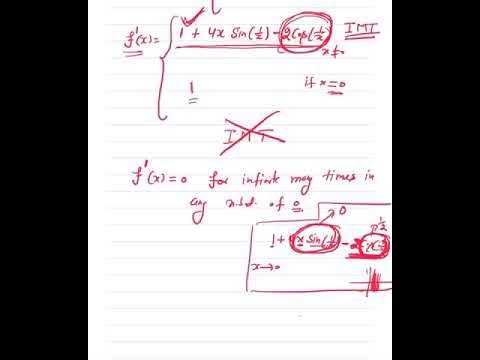 f'(x) = { 1 + 4x Sin(1/x) - 2Cos(1/x) x≠0 IMT
1 if x=0
IMT
f'(x)=0 for infinite many times in
any n.b.d. of 0
0 1/2
1 + x Sin(1/x) - 2
x→0